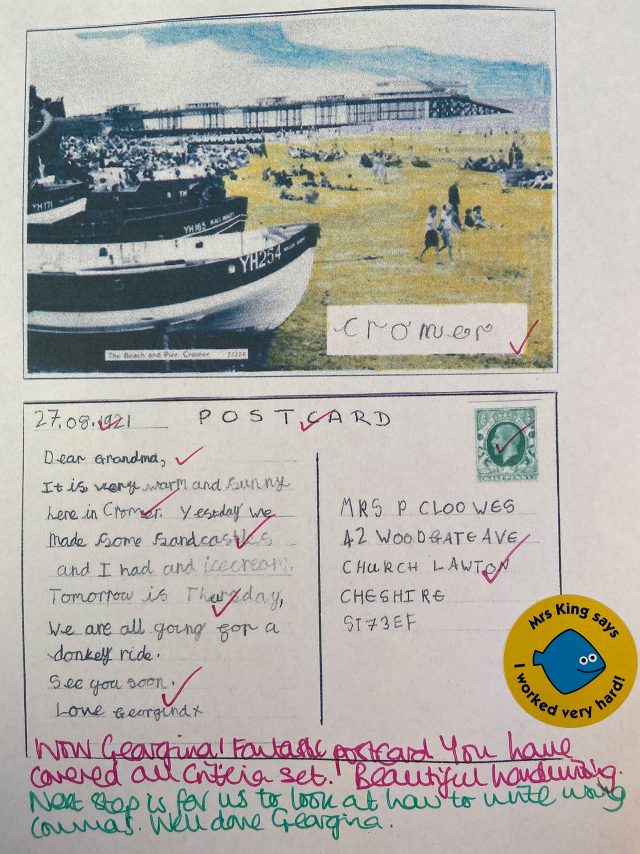 YH171
YH
YH163
YH254
The Beach and Pier, Cromer. 27224
Cromer
27.08.1921 POSTCARD
HALFPENNY
Dear Grandma,
It is very warm and sunny
here in Cromer. Yestday we
made some sandcastles
and I had and icecream.
Tomorrow is Thursday,
We are all going for a
donkey ride.
See you soon.
Love Georgina x
MRS P CLOOWES
42 WOODGATE AVE
CHURCH LAWTON
CHESHIRE
ST73EF
Mrs King says
I worked very hard!
Wow Georgina! Fantastic postcard You have
covered all criteria set. Beautiful handwriting.
Next step is for us to look at how to write using
commas. Well done Georgina.